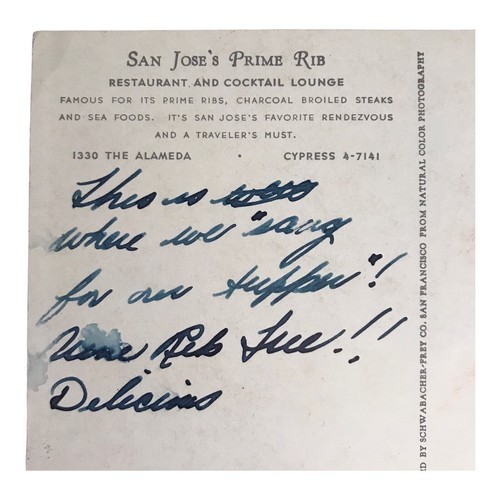 San Jose's Prime Rib
RESTAURANT AND COCKTAIL LOUNGE
FAMOUS FOR ITS PRIME RIBS, CHARCOAL BROILED STEAKS
AND SEA FOODS. IT'S SAN JOSE'S FAVORITE RENDEZVOUS
AND A TRAVELER'S MUST.
1330 THE ALAMEDA • CYPRESS 4-7141
This is
where we "sang
for our supper"!
Rib Free!!
Delicious
D BY SCHWABACHER-FREY CO. SAN FRANCISCO FROM NATURAL COLOR PHOTOGRAPHY